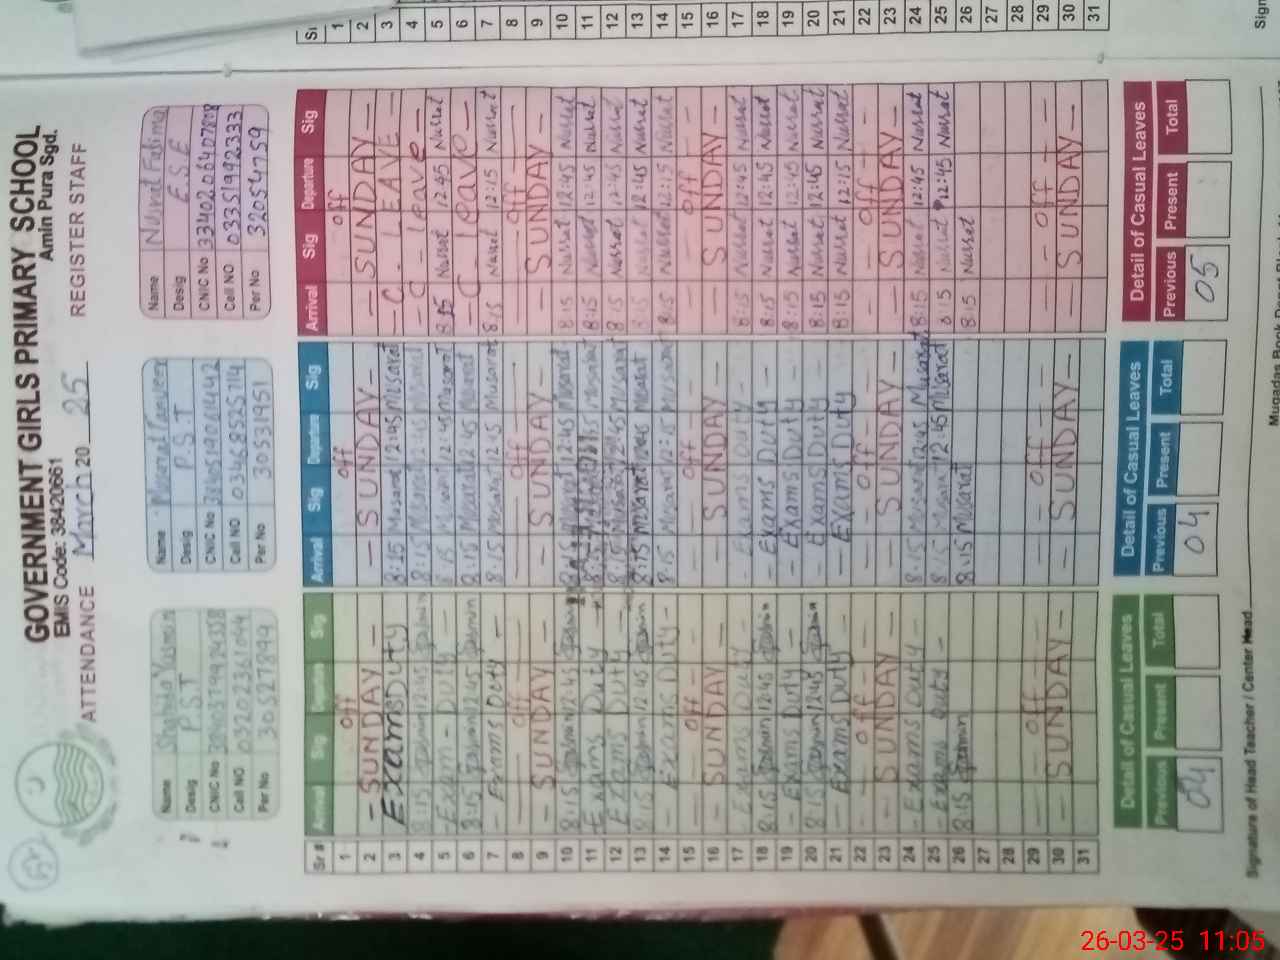 GOVERNMENT GIRLS PRIMARY SCHOOL
EMIS Code: 38420661 Amin Pura Sgd.
ATTENDANCE March 20 25 REGISTER STAFF
Name Shahida Yasmin
Desig P.S.T
CNIC No
Cell NO 03202361044
Per No 30527899
Name Musarat Tanveer
Desig P.S.T
CNIC No
Cell NO 03468525714
Per No 30531951
Name Nusrat Fatima
Desig E.S.E
CNIC No
Cell NO 03351992333
Per No 32054759
Sr # Arrival Sig Departure Sig Arrival Sig Departure Sig Arrival Sig Departure Sig
1 off off off
2 SUNDAY SUNDAY SUNDAY
3 Exams Duty 8:15 Musarat 12:45 Musarat C. LEAVE
4 8:15 12:45 8:15 Musarat 12:45 Musarat C Leave
5 Exam - Duty 8:15 Musarat 12:45 Musarat 8:15 Nusrat 12:45 Nusrat
6 8:15 12:45 8:15 Musarat 12:45 Musarat C Leave
7 Exams Duty 8:15 Musarat 12:15 Musarat 8:15 Nusrat 12:15 Nusrat
8 off off off
9 SUNDAY SUNDAY SUNDAY
10 8:15 12:45 Musarat 12:45 Musarat 8:15 Nusrat 12:45 Nusrat
11 Exams Duty 8:15 Musarat 8:15 Nusrat 12:45 Nusrat
12 Exams Duty 8:15 Musarat 12:45 Musarat 8:15 Nusrat 12:45 Nusrat
13 8:15 12:45 8:15 Musarat 12:45 Musarat 8:15 Nusrat 12:45 Nusrat
14 Exams Duty 8:15 Musarat 12:15 Musarat 8:15 Nusrat 12:15 Nusrat
15 off off off
16 SUNDAY SUNDAY SUNDAY
17 Exams Duty Exams Duty 8:15 Nusrat 12:45 Nusrat
18 8:15 12:45 Exams Duty 8:15 Nusrat 12:45 Nusrat
19 Exams Duty Exams Duty 8:15 Nusrat 12:45 Nusrat
20 8:15 12:45 Exams Duty 8:15 Nusrat 12:45 Nusrat
21 Exams Duty Exams Duty 8:15 Nusrat 12:15 Nusrat
22 off off off
23 SUNDAY SUNDAY SUNDAY
24 Exams Duty 8:15 Musarat 12:45 Musarat 8:15 Nusrat 12:45 Nusrat
25 Exams Duty 8:15 Musarat 12:45 Musarat 8:15 Nusrat 12:45 Nusrat
26 8:15 8:15 Musarat 8:15 Nusrat
27
28
29 off off off
30 SUNDAY SUNDAY SUNDAY
31
Detail of Casual Leaves Detail of Casual Leaves Detail of Casual Leaves
Previous Present Total Previous Present Total Previous Present Total
04 04 05
Signature of Head Teacher / Center Head
26-03-25 11:05